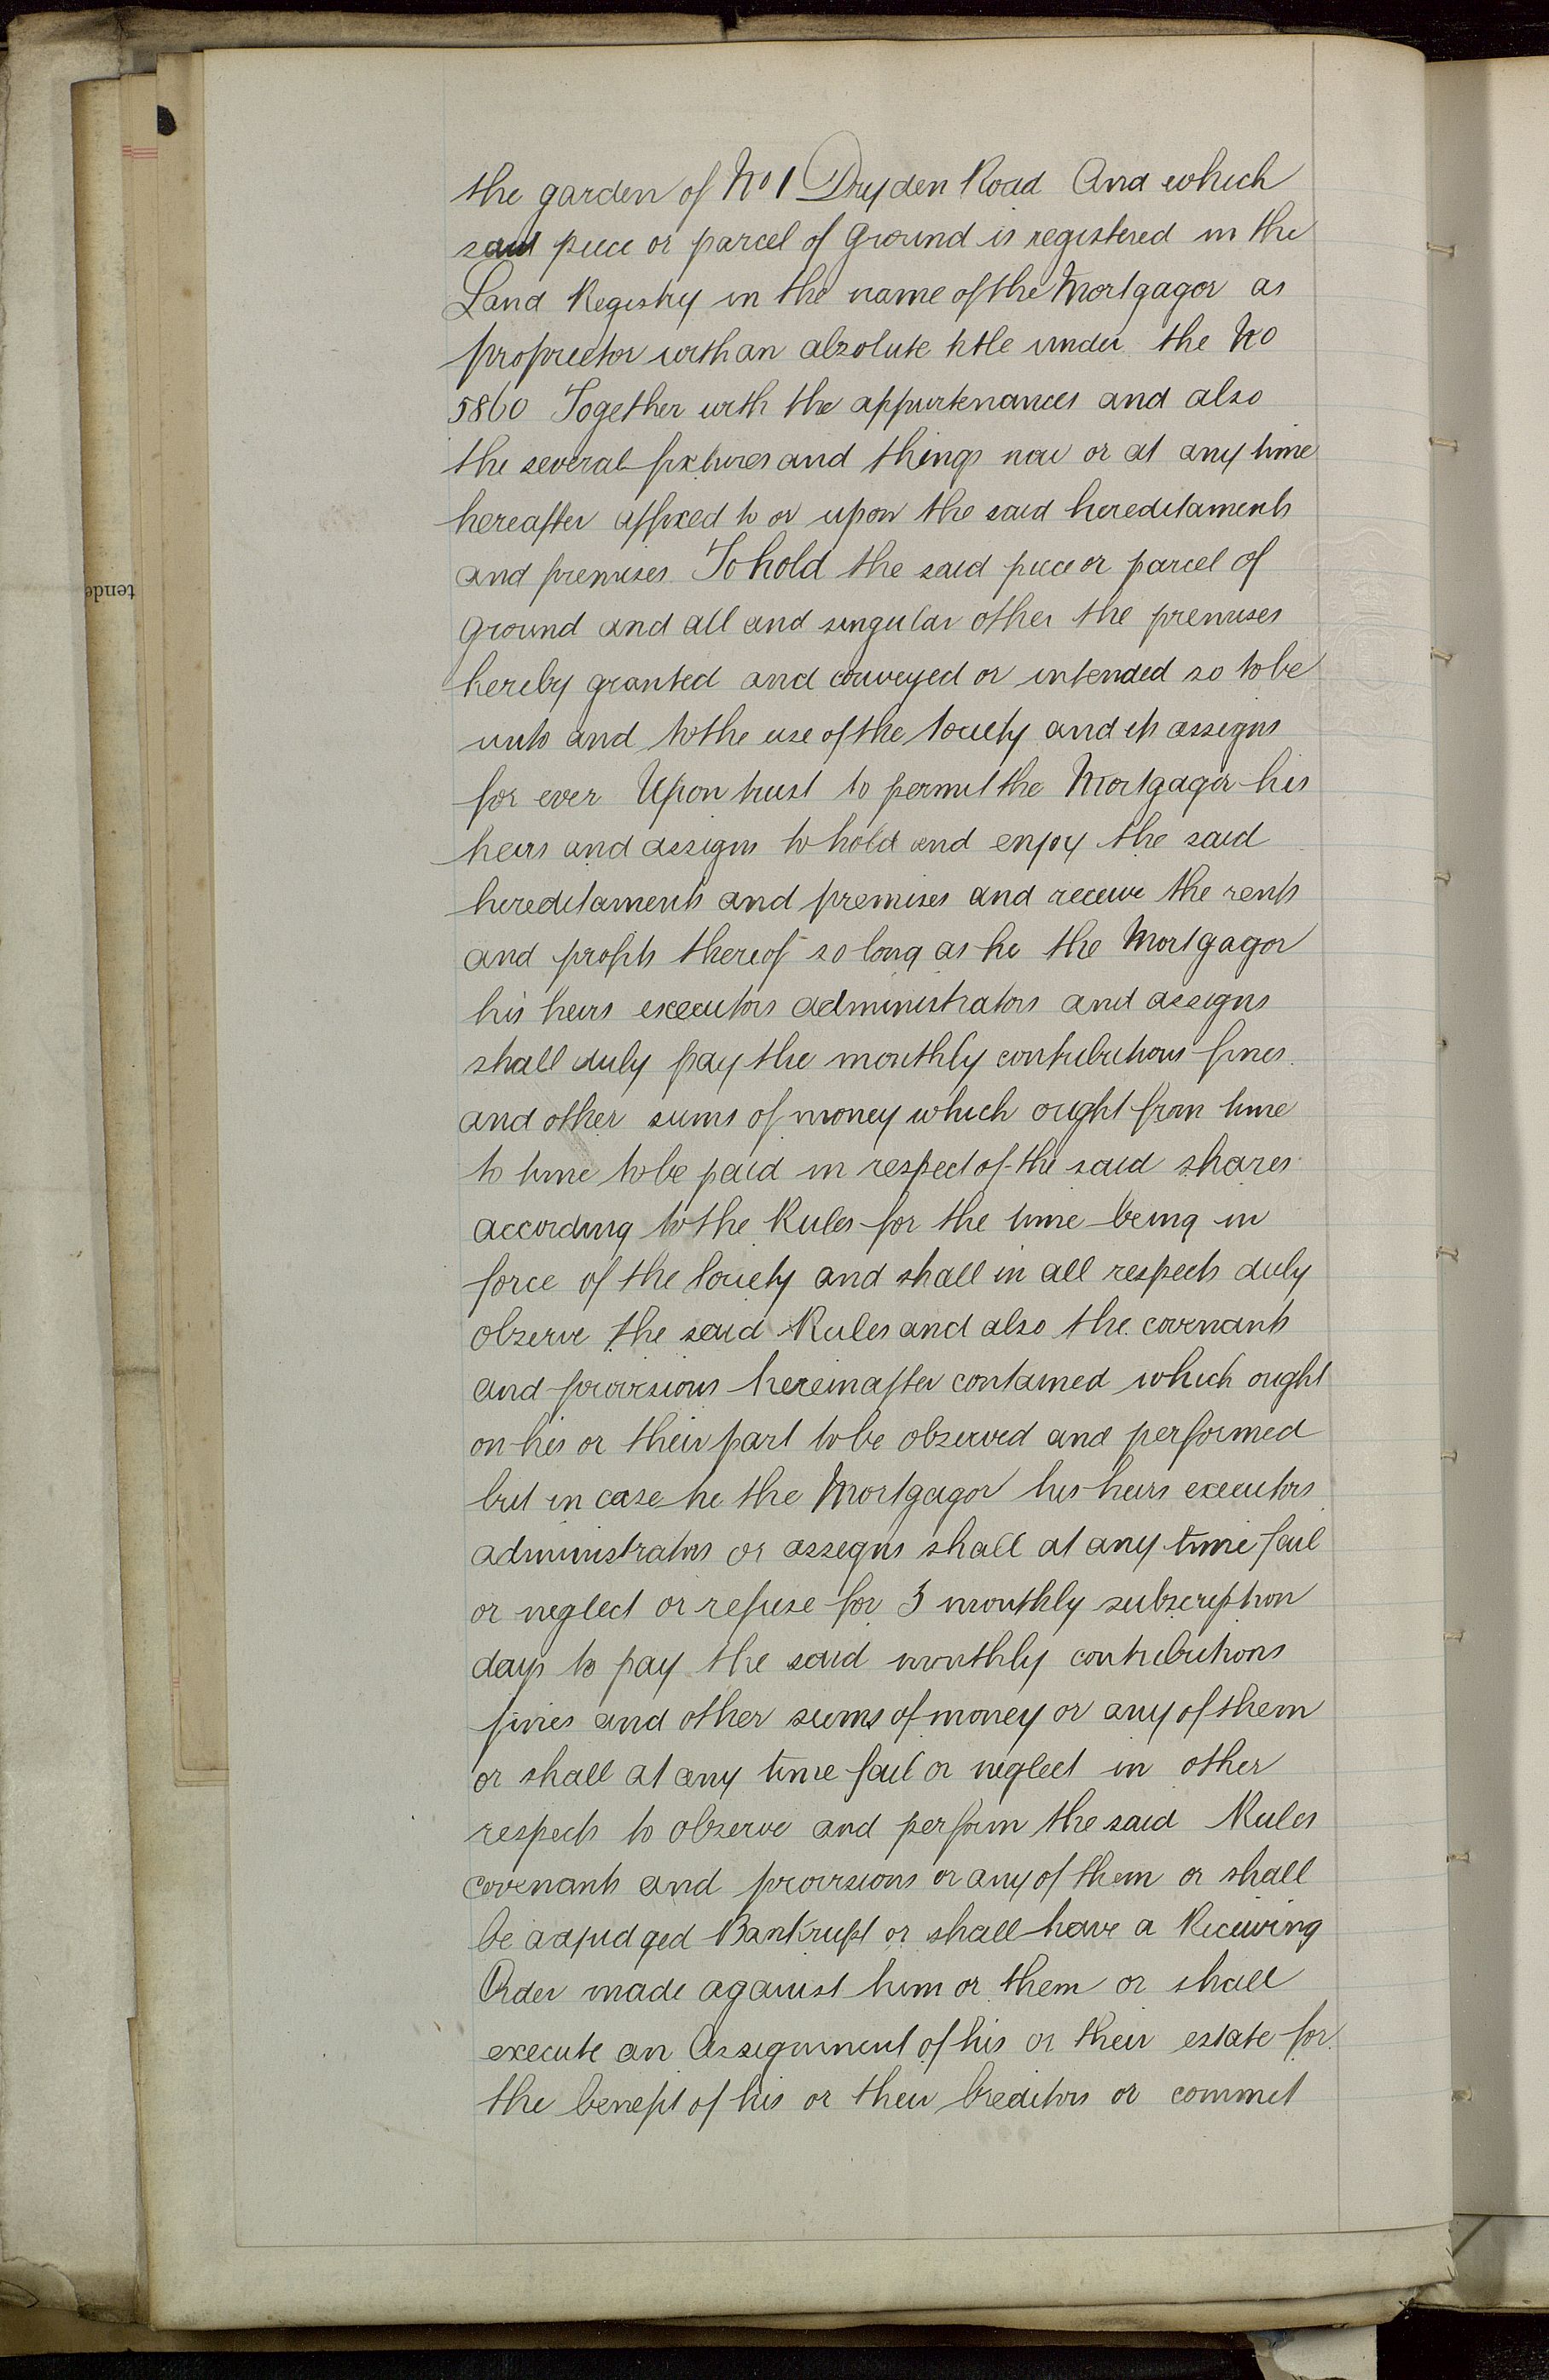 the garden of No 1 Dryden Road And which
said piece or parcel of Ground is registered in the
Land Registry in the name of the Mortgagor as
proprietor with an absolute title under the No
5860 Together with the appurtenances and also
the several fixtures and things now or at any time
hereafter affixed to or upon the said hereditaments
and premises To hold the said piece or parcel of
Ground and all and singular other the premises
hereby granted and conveyed or intended so to be
unto and to the use of the Society and its assigns
for ever Upon trust to permit the Mortgagor his
heirs and assigns to hold and enjoy the said
hereditaments and premises and receive the rents
and profits thereof so long as he the Mortgagor
his heirs executors administrators and assigns
shall duly pay the monthly contributions fines
and other sums of money which ought from time
to time to be paid in respect of the said shares
according to the Rules for the time being in
force of the Society and shall in all respects duly
observe the said Rules and also the covenants
and provisions hereinafter contained which ought
on his or their part to be observed and performed
but in case he the Mortgagor his heirs executors
administrators or assigns shall at any time fail
or neglect or refuse for 3 monthly subscription
days to pay the said monthly contributions
fines and other sums of money or any of them
or shall at any time fail or neglect in other
respects to observe and perform the said Rules
covenants and provisions or any of them or shall
be adjudged Bankrupt or shall have a Receiving
Order made against him or them or shall
execute an Assignment of his or their estate for
the benefit of his or their Creditors or commit
tende